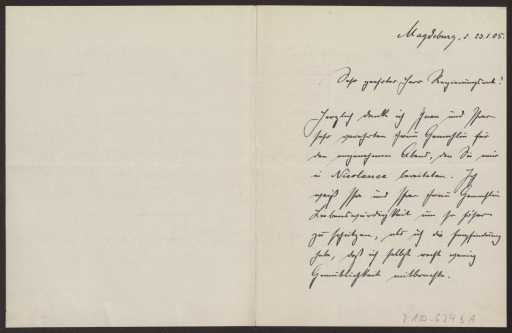 Magdeburg, d. 23.1.05.
Sehr geehrter Herr Regierungsrat!
Herzlich danke ich Ihnen und Ihrer
sehr verehrten Frau Gemahlin für
den angenehmen Abend, den Sie mir
in Nicolassee bereiteten. Ich
weiß Ihre und Ihrer Frau Gemahlin
Liebenswürdigkeit um so höher
zu schätzen, als ich die Empfindung
habe, daß ich selbst recht wenig
Gemütlichkeit mitbrachte.